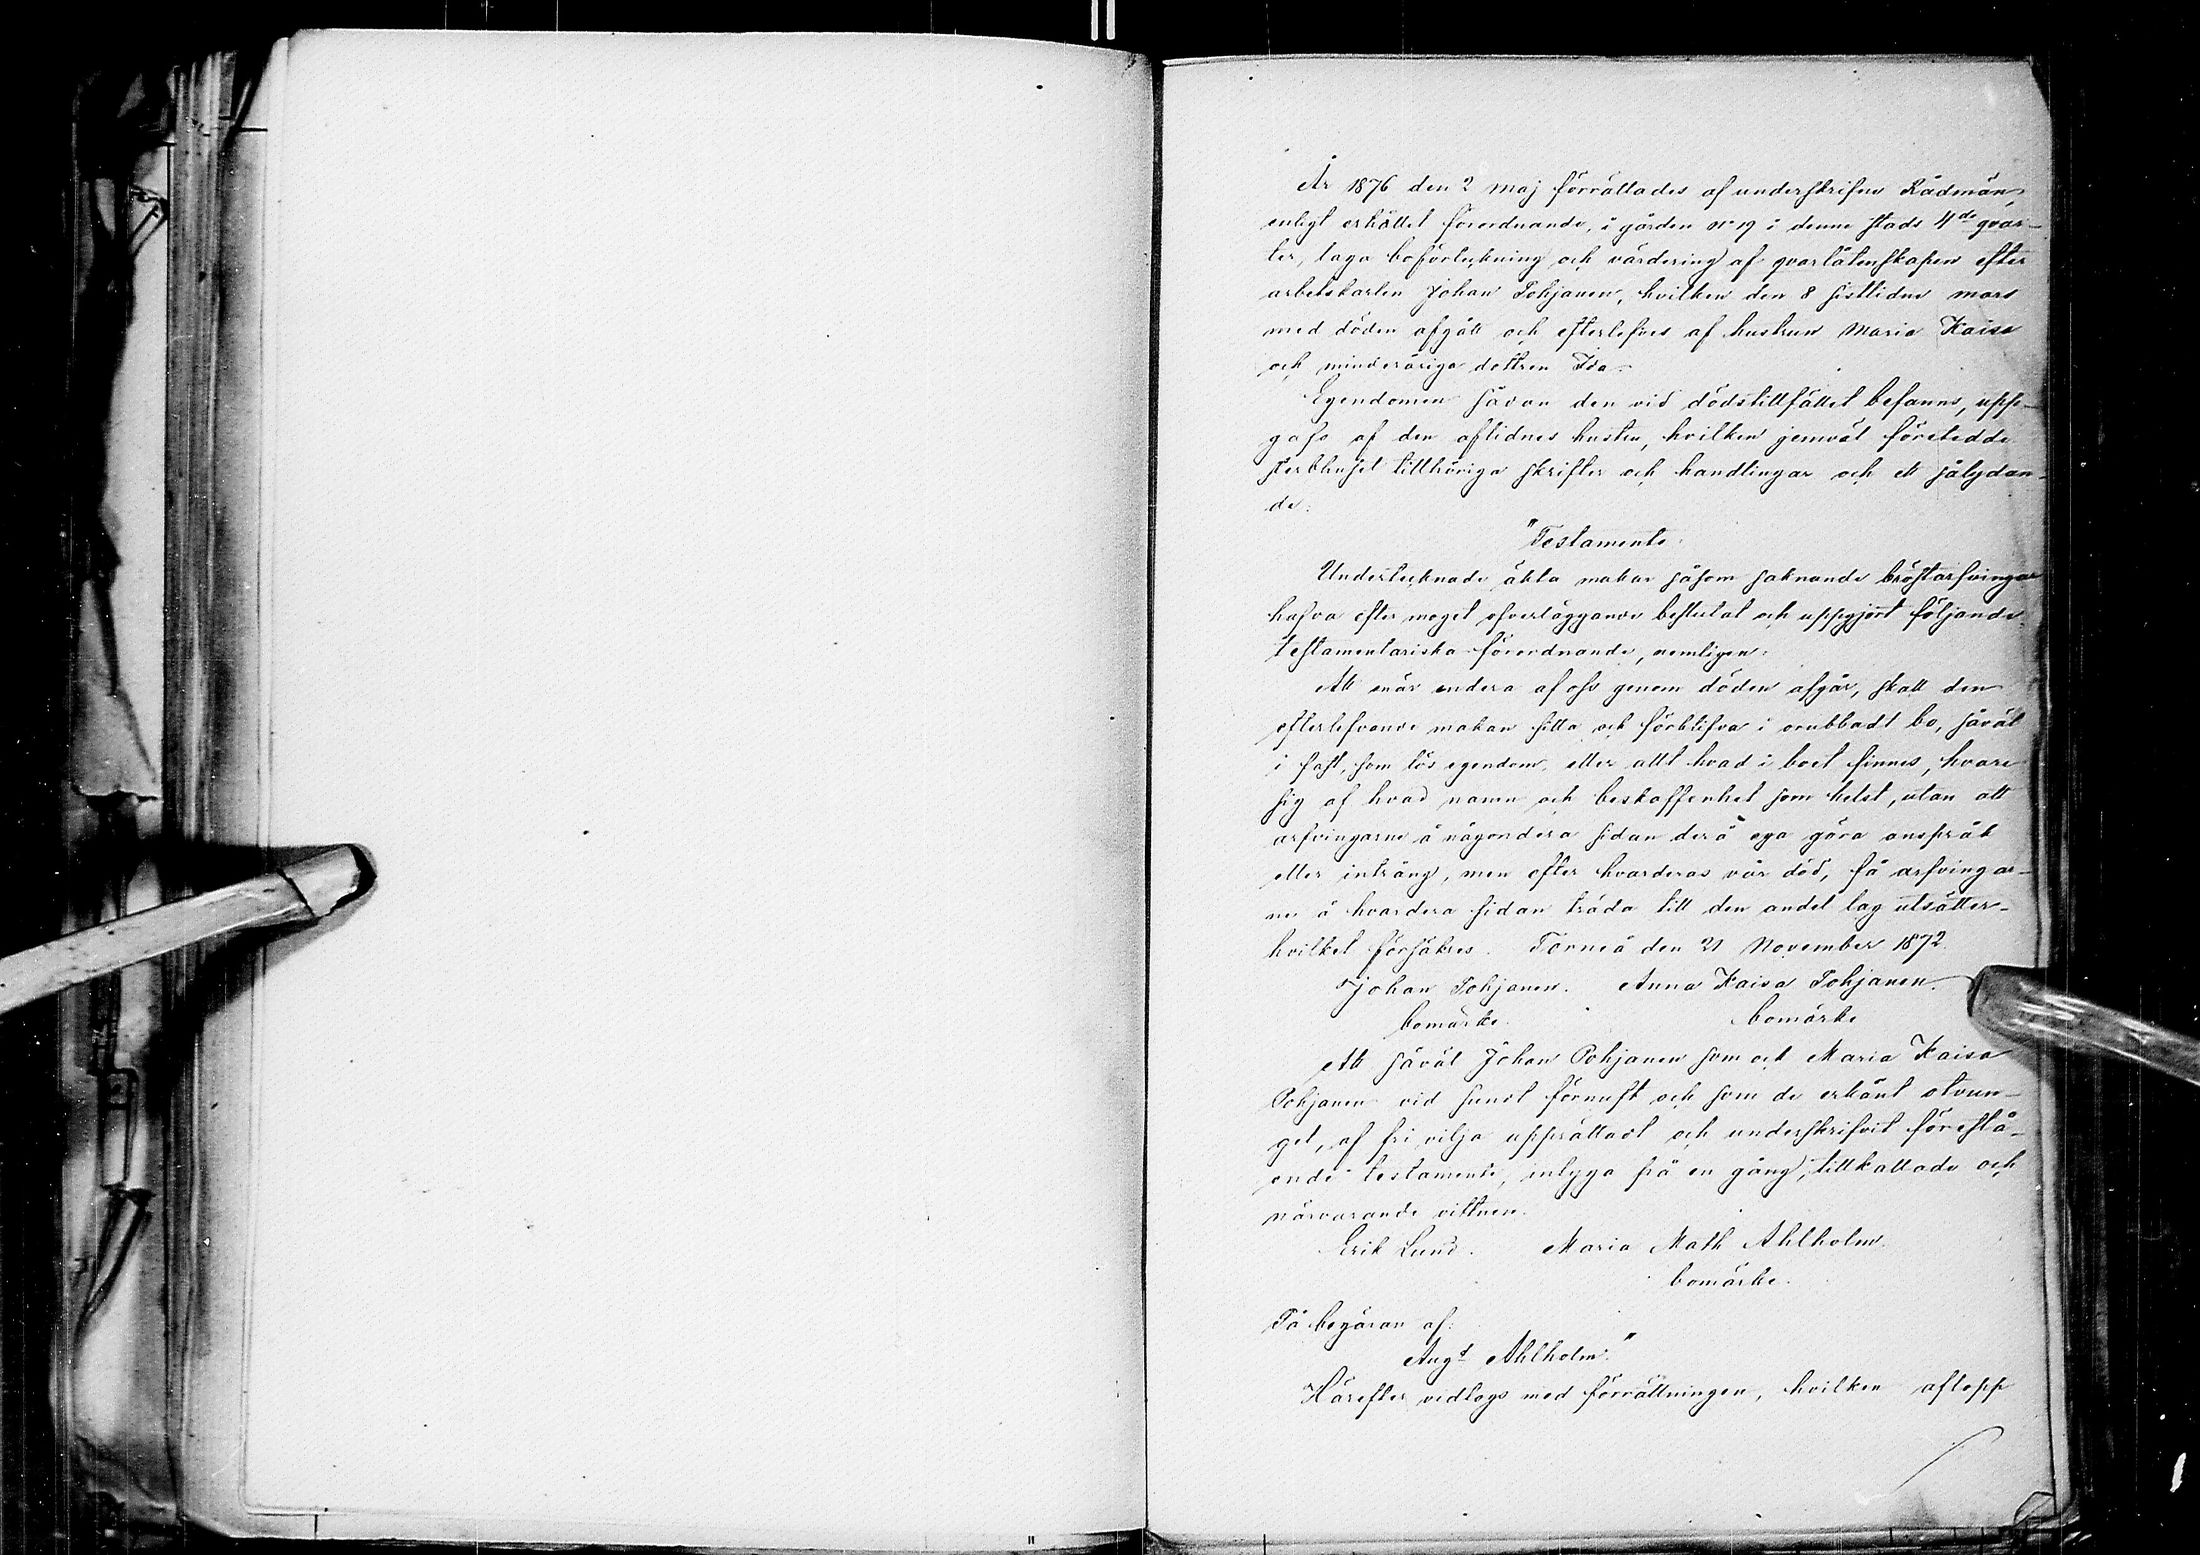 År 1876 den 2 maj förrättades af underskrifne Rådmän,
enligt erhållet förordnande, i gården No 19 i denne stads 4de qvar-
ter, laga boförteckning och värdering af qvarlåtenskapen efter
arbetskarlen Johan Pohjanen, hvilken den 8 sistlidne mars
med döden afgått och efterlefves af hustrun Maria Kaisa
och minderåriga dottren Ida.
Egendomen sådan den vid dödstillfället befanns, upp-
gafs af den aflidnes hustru, hvilken jemväl företedde
sterbhuset tillhöriga skrifter och handlingar och ett sålydan-
de:
"Testamente.
Undertecknade äkta makar såsom saknande bröstarfvingar
hafva efter moget öfverläggande beslutat och uppgjort följande
testamentariska förordnande, nemligen:
Att när endera af oss genom döden afgår, skall den
efterlefvande makan sitta och förblifva i orubbadt bo, såväl
i fast, som lös egendom, eller allt hvad i boet finnes, hvare
sig af hvad namn och beskaffenhet som helst, utan att
arfvingarne å någondera sidan derå ega göra anspråk
eller intrång, men efter hvarderas vår död, få arfvingar-
ne å hvardera sidan träda till den andel lag utsätter-
hvilket försäkres. Torneå den 21 November 1872.
Johan Pohjanen. Anna Kaisa Pohjanen.
bomärke. bomärke
Att såväl Johan Pohjanen som ock Maria Kaisa
Pohjanen vid sundt förnuft och som de erkänt otvun-
get, af fri vilja upprättadt och underskrifvit förestå-
ende testamente, intyga på en gång, tillkallade och
närvarande vittnen.
Erik Lund. Maria Math Ahlholm.
bomärke.
På begäran af:
Augt Ahlholm."
Härefter vidtogs med förrättningen, hvilken aflopp